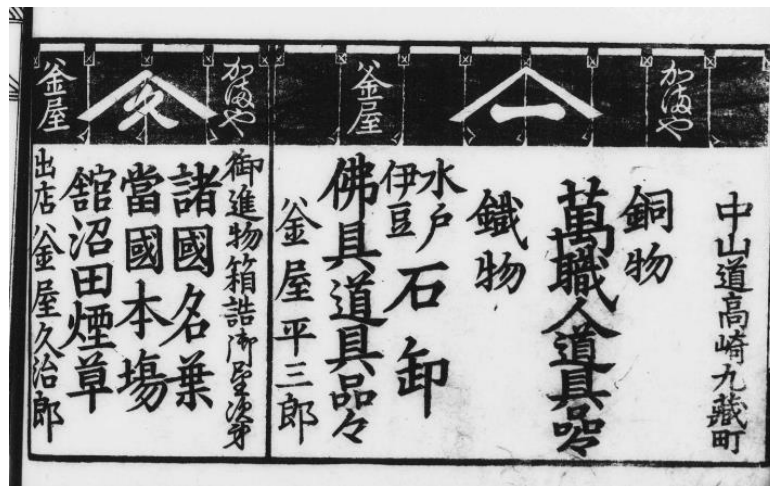 かまや
一
釜屋
中山道高崎九藏町
銅物
萬職人道具品々
鐵物
水戸
伊豆
石卸
佛具道具品々
釜屋平三郎
かまや
久
釜屋
御進物箱詰御望次第
諸國名葉
當國本場
舘沼田煙草
出店釜屋久治郎